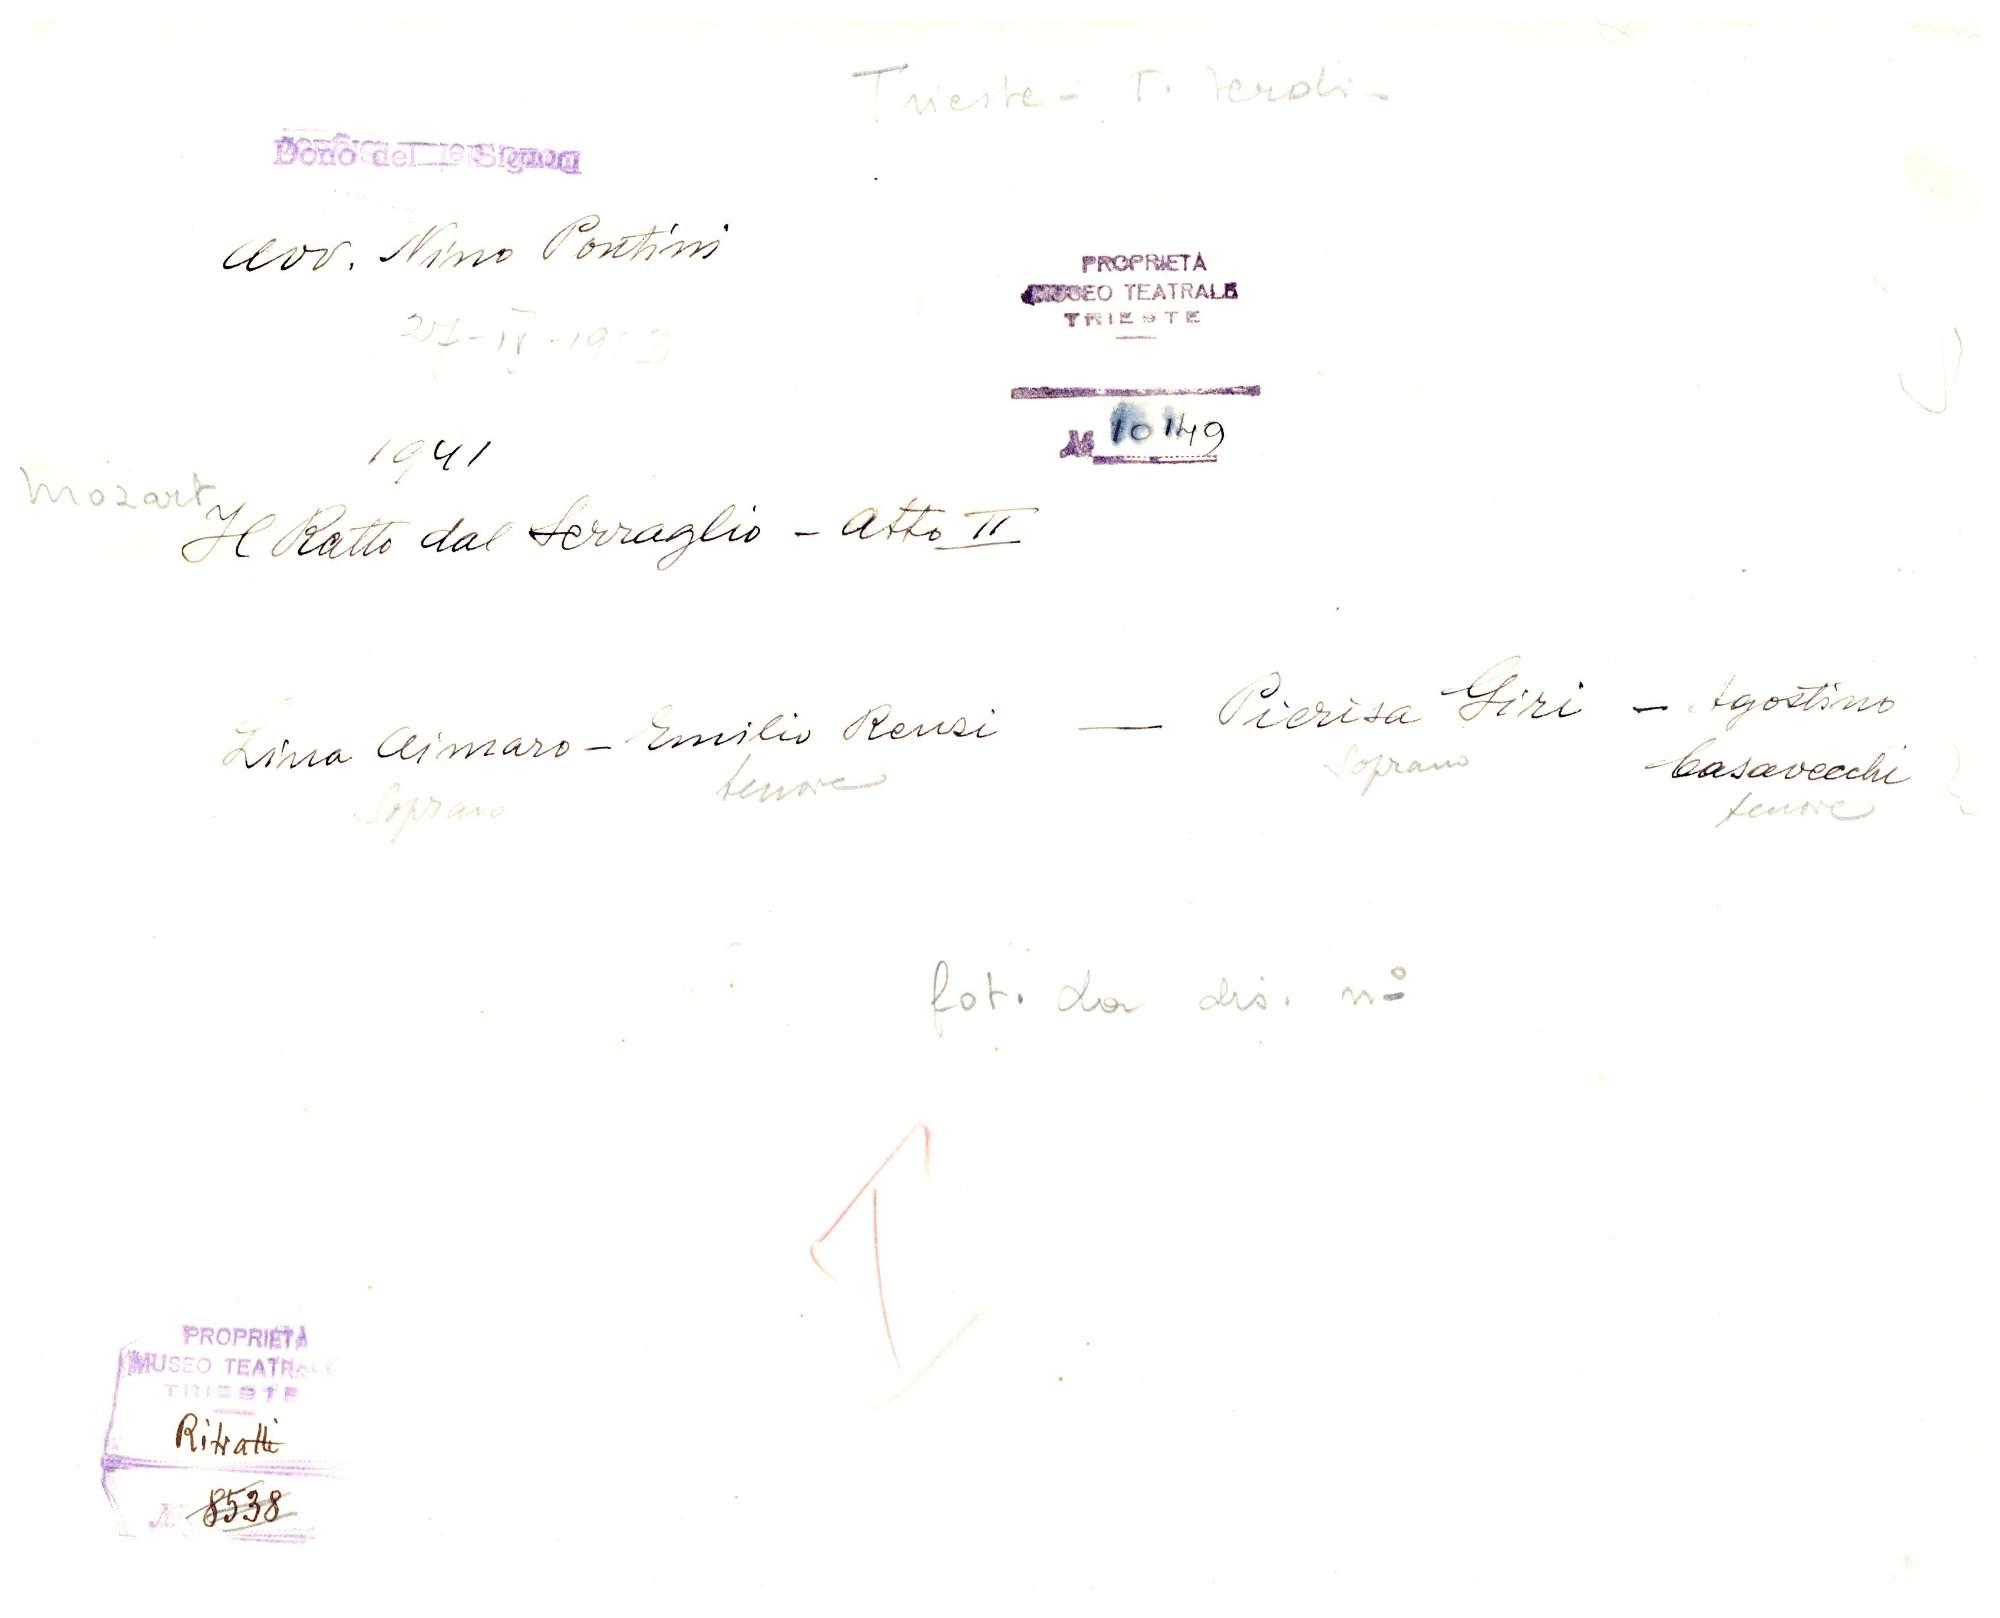 Trieste - T. Verdi -
Dono del Signor
Avv. Nino Pontini
1941
Mozart
Il Ratto dal Serraglio - Atto II
PROPRIETÀ
MUSEO TEATRALE
TRIESTE
№ 10149
Lina Aimaro - Emilio Renzi — Pierisa Giri - Agostino
Casavecchi
Soprano tenore Soprano tenore
fot. da dis. nº
PROPRIETÀ
MUSEO TEATRALE
TRIESTE
Ritratti
№ 8538